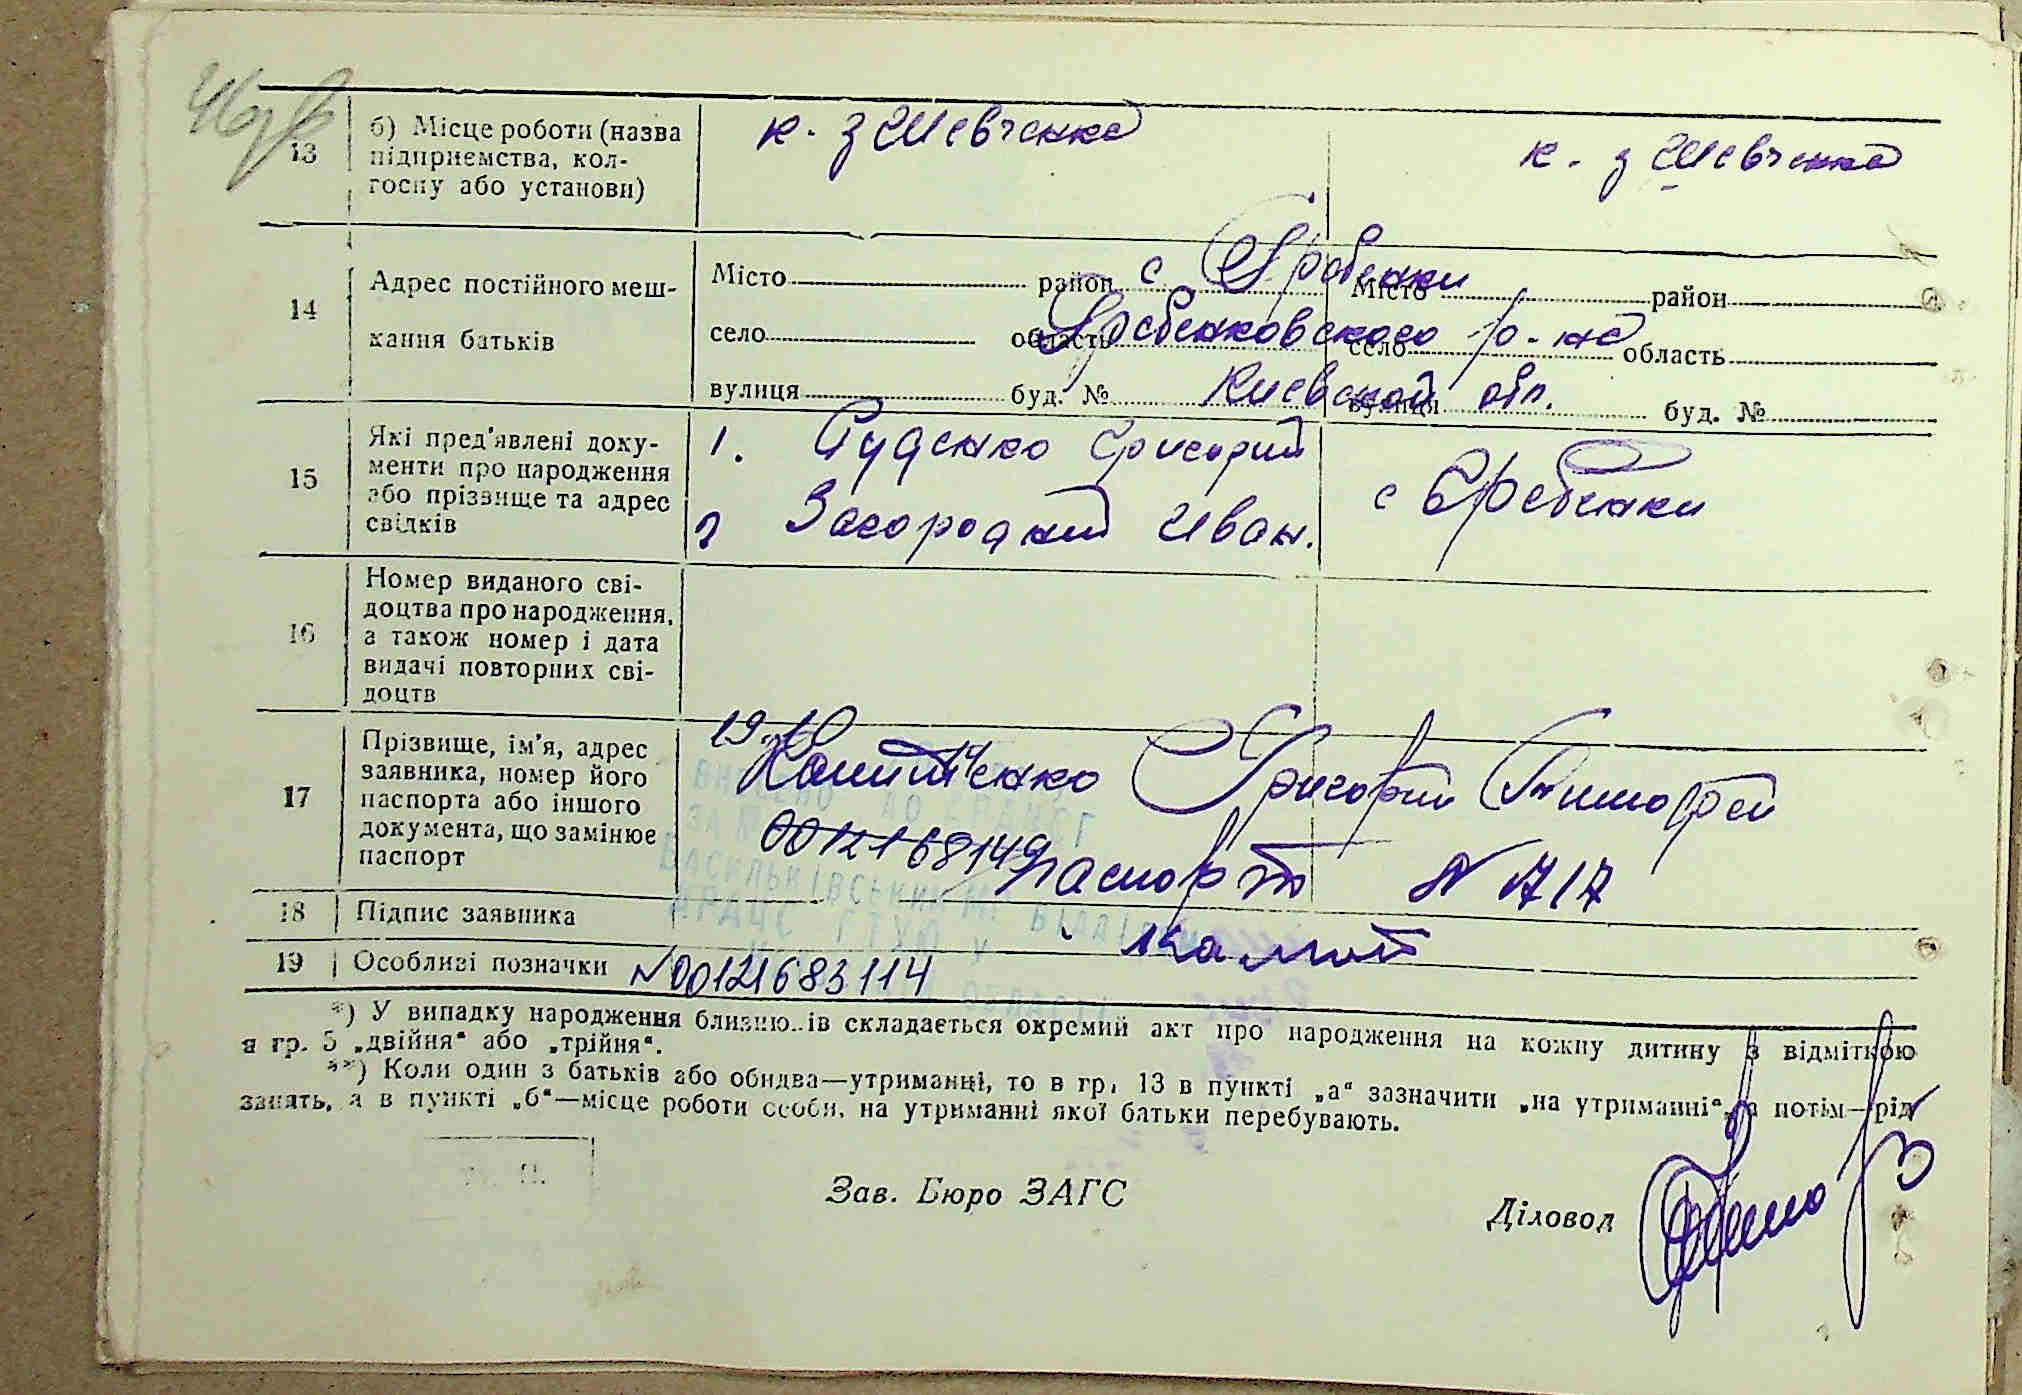 13
б) Місце роботи (назва
підприємства, кол-
госпу або установи)
к. з Шевченка
к. з Шевченка
14
Адрес постійного меш-
кання батьків
Місто район
с Гребенки
Місто район
село область
Гребенковского р-на
село область
вулиця буд. №
Киевской обл.
вулиця буд. №
15
Які пред'явлені доку-
менти про народження
або прізвище та адрес
свідків
1. Григорий
2 Загородний Иван.
с Гребенки
16
Номер виданого сві-
доцтва про народження,
а також номер і дата
видачі повторних сві-
доцтв
17
Прізвище, ім'я, адрес
заявника, номер його
паспорта або іншого
документа, що замінює
паспорт
Григорий
00121168149
паспорт № 717
ВАСИЛЬКІВСЬКИМ
18
Підпис заявника
19
Особливі позначки
№00121683114
*) У випадку народження близнюків складається окремий акт про народження на кожну дитину з відміткою
в гр. 5 „двійня“ або „трійня“.
**) Коли один з батьків або обидва—утриманці, то в гр. 13 в пункті „а“ зазначити „на утриманні“, а потім—рід
занять, а в пункті „б“—місце роботи особи, на утриманні якої батьки перебувають.
Зав. Бюро ЗАГС
Діловод